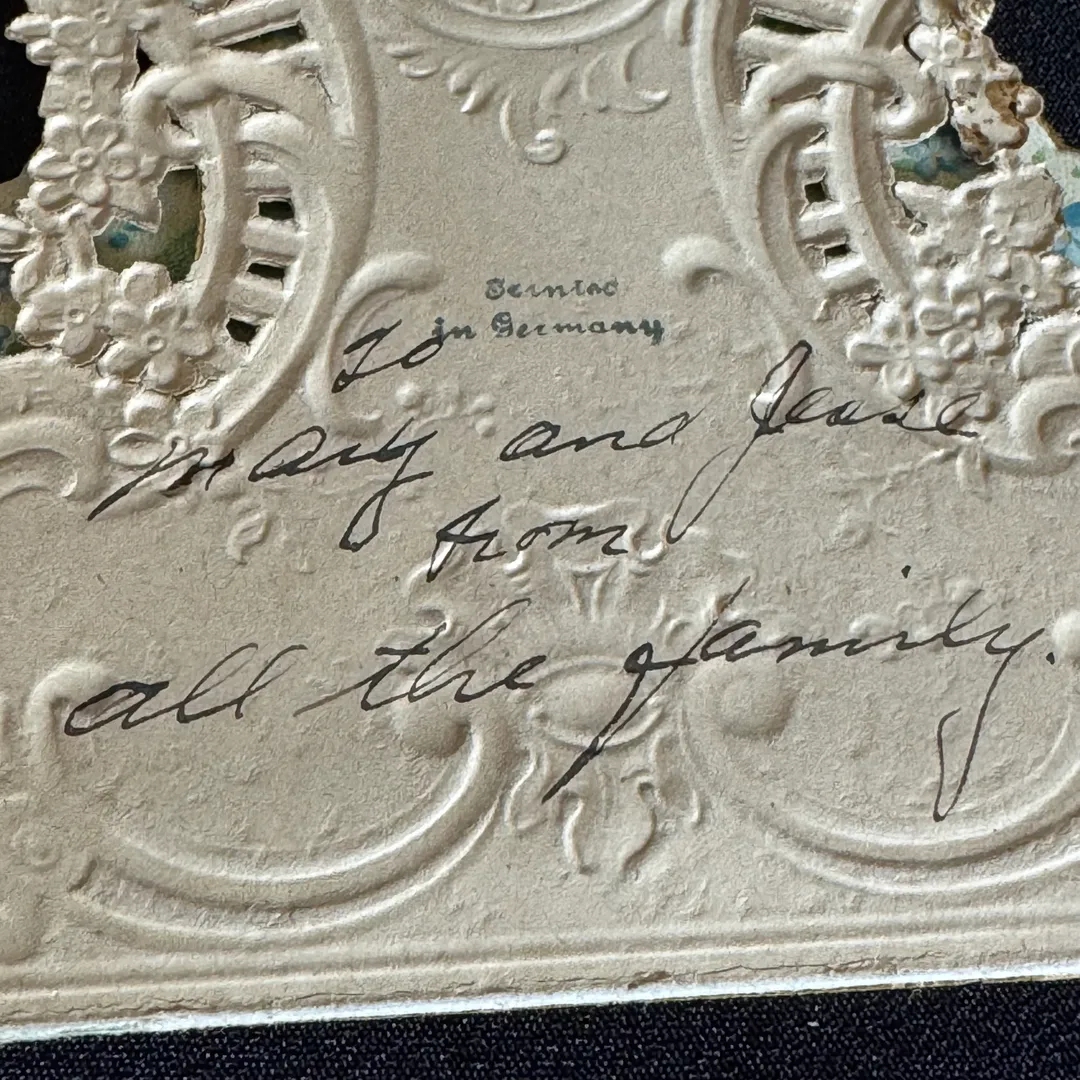 Printed
in Germany
To
Mary and Jesse
from
all the family.